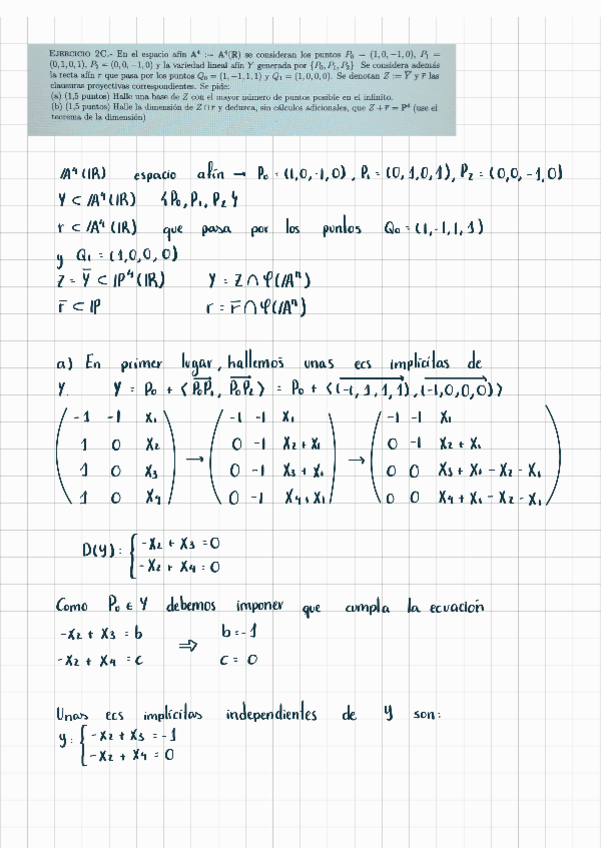 EJERCICIO 2C.- En el espacio afín A⁴ := A⁴(R) se consideran los puntos P₀ = (1,0,−1,0), P₁ =
(0,1,0,1), P₂ = (0,0,−1,0) y la variedad lineal afín Y generada por {P₀, P₁, P₂} Se considera además
la recta afín r que pasa por los puntos Q₀ = (1,−1,1,1) y Q₁ = (1,0,0,0). Se denotan Z := Y̅ y r̅ las
clausuras proyectivas correspondientes. Se pide:
(a) (1,5 puntos) Halle una base de Z con el mayor número de puntos posible en el infinito.
(b) (1,5 puntos) Halle la dimensión de Z ∩ r̅ y deduzca, sin cálculos adicionales, que Z + r̅ = P⁴ (use el
teorema de la dimensión)
A⁴(IR) espacio afín → P₀ = (1,0,-1,0), P₁ = (0,1,0,1), P₂ = (0,0,-1,0)
Y ⊂ A⁴(IR) {P₀, P₁, P₂}
r ⊂ A⁴(IR) que pasa por los puntos Q₀ = (1,-1,1,1)
y Q₁ = (1,0,0,0)
Z = Y̅ ⊂ IP⁴(IR) Y = Z ∩ φ(Aⁿ)
r̅ ⊂ IP r = r̅ ∩ φ(Aⁿ)
a) En primer lugar, hallemos unas ecs implícitas de
Y. Y = P₀ + <P₀P₁, P₀P₂> = P₀ + <(-1,1,1,1),(-1,0,0,0)>
( -1 -1 X₁ ) ( -1 -1 X₁ ) ( -1 -1 X₁ )
1 0 X₂ 0 -1 X₂ + X₁ 0 -1 X₂ + X₁
1 0 X₃ → 0 -1 X₃ + X₁ → 0 0 X₃ + X₁ - X₂ - X₁
1 0 X₄ 0 -1 X₄ + X₁ 0 0 X₄ + X₁ - X₂ - X₁
D(Y): { -X₂ + X₃ = 0
-X₂ + X₄ = 0
Como P₀ ∈ Y debemos imponer que cumpla la ecuación
-X₂ + X₃ = b ⇒ b = -1
-X₂ + X₄ = c c = 0
Unas ecs implícitas independientes de Y son:
Y: { -X₂ + X₃ = -1
-X₂ + X₄ = 0